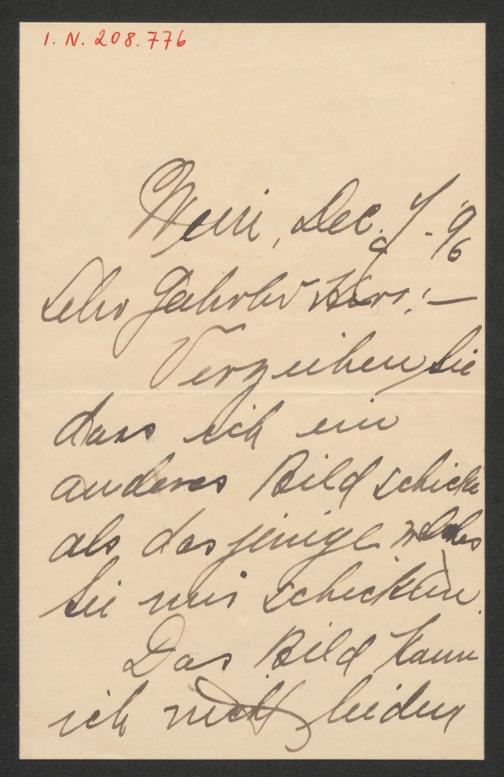 I. N. 208.776
Wien, Dec. 7 - 96
Sehr Geehrter Herr! —
Verzeihen Sie
dass ich ein
anderes Bild schicke
als dasjenige welches
Sie mir schickten.
Das Bild kann
ich nicht leiden